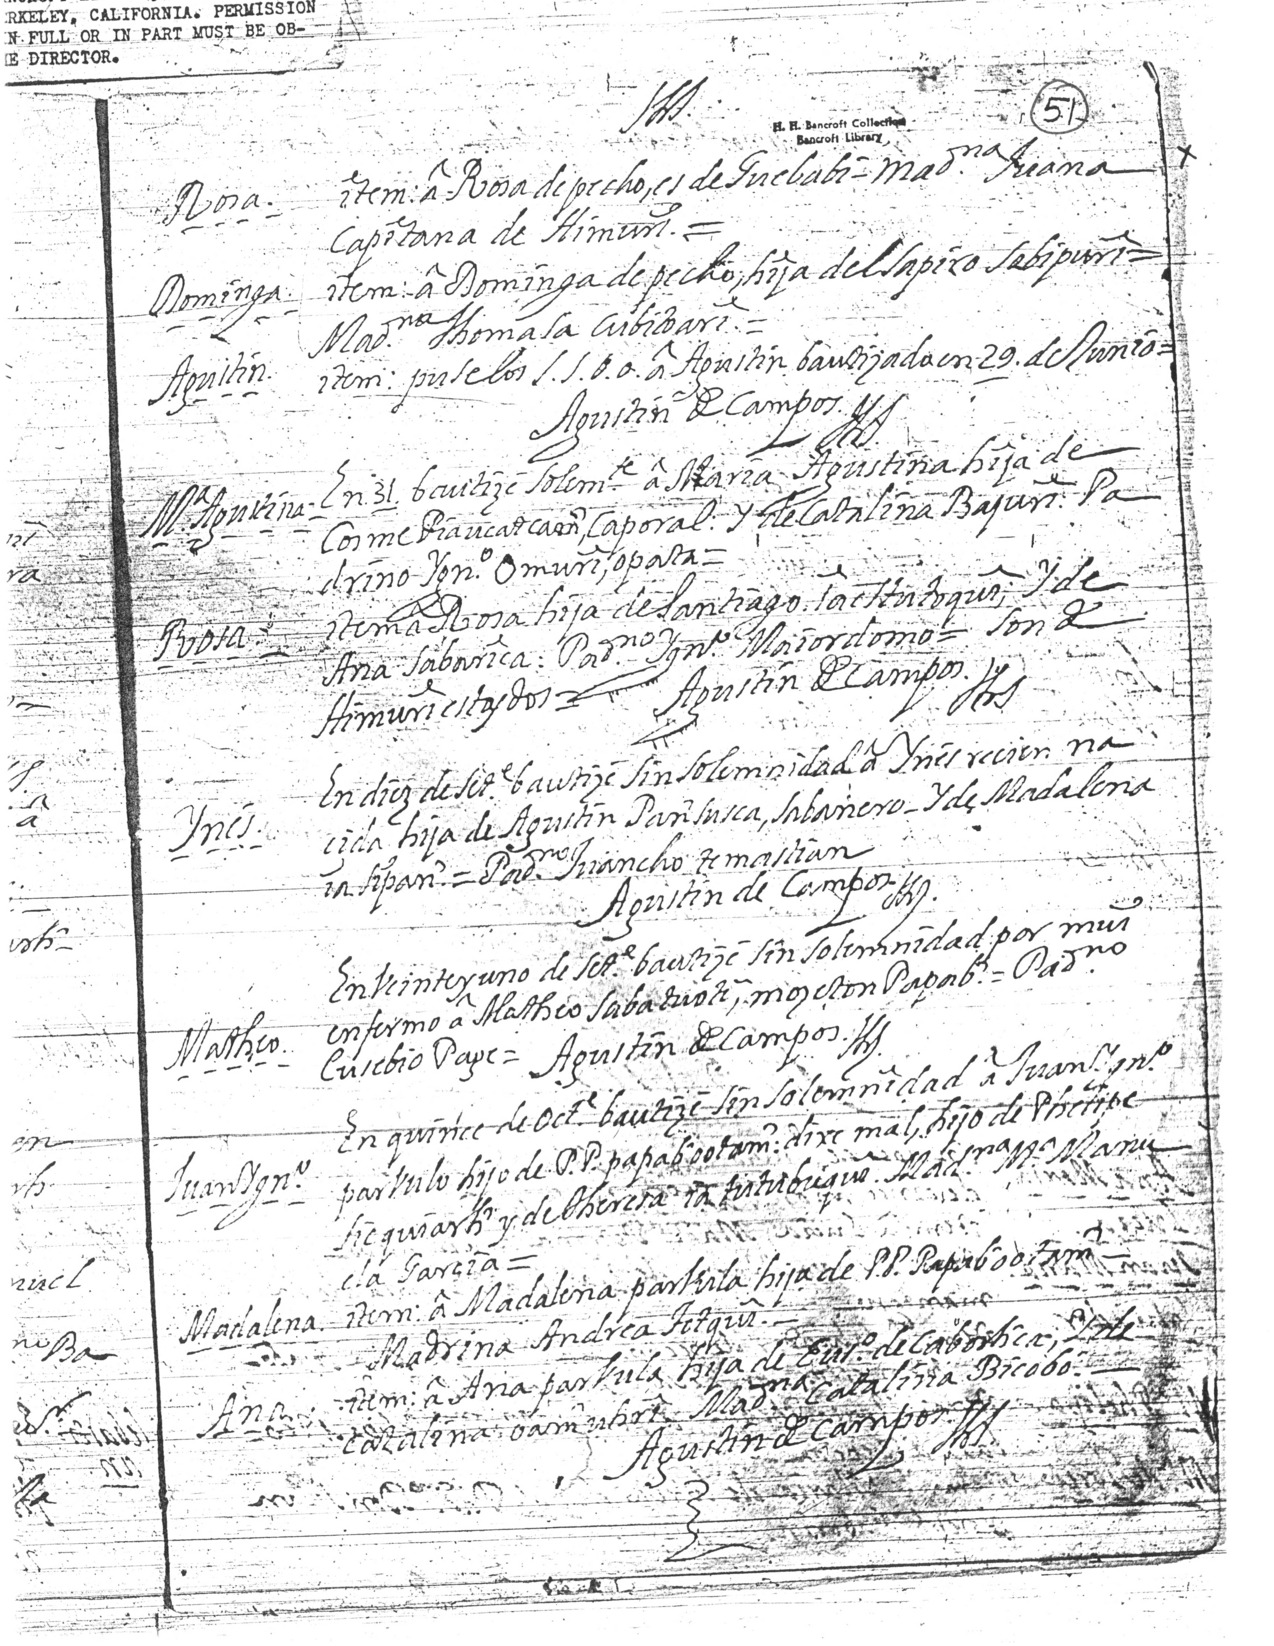 ERKELEY, CALIFORNIA. PERMISSION
N FULL OR IN PART MUST BE OB-
E DIRECTOR.
51
H. H. Bancroft Collection
Bancroft Library
x
Rosa. item: â Rosa de pecho, es de Guebabi = Mad.na Juana
Capitana de Himuri. =
Dominga. item: â Dominga de pecho, hija del Sapizo Sabipuri =
Mad.na Thomasa Cubitoari. =
Agustin. item: puse los S. S. O. o. â Agustin bautizado en 29. de Junio =
Agustin de Campos.
Ma Agustina. En 31. bautizè solem.te â Maria Agustina hija de
Cosme Piaucatcam, Caporal. Y de Catalina Bajuri. Pa
drino Ygn.o Omuri, opata =
Rosa. item â Rosa hija de Santiago Yâctutoqui, Y de
Ana Sabarica: Pad.no Ygn.o Maiordomo = Son de
Himuri estos dos = Agustin de Campos.
Ynes. En diez de Set.e bautizè sin solemnidad â Ynes recien na
cida hija de Agustin Pansusca, Sabanero - Y de Madalena
ia Sipan. = Pad.no Juancho temastian
Agustin de Campos
urti
Matheo. En Veinte y uno de Set.e bautizè sin solemnidad por mui
enfermo â Matheo Sabatuoti, mozeton Papab.i = Pad.no
Eusebio Paze = Agustin de Campos.
Juan Ygn.o En quince de Oct.e bautizè sin solemnidad â Juan Ygn.o
parvulo hijo de P.P. papabiootam: dixe mal, hijo de Phelipe
Siequiarti y de Theresa ia tutubuqui. Mad.na Ma Manu
ela Garcia =
Madalena. item: â Madalena parvula hija de P.P. Papabiootam =
Madrina Andrea Titqui. =
Ana. item: â Ana parvula hija de Eus.o de Cabortica, Y de
Catalina oamuhri. Mad.na Catalina Bicobo. =
Agustin de Campos